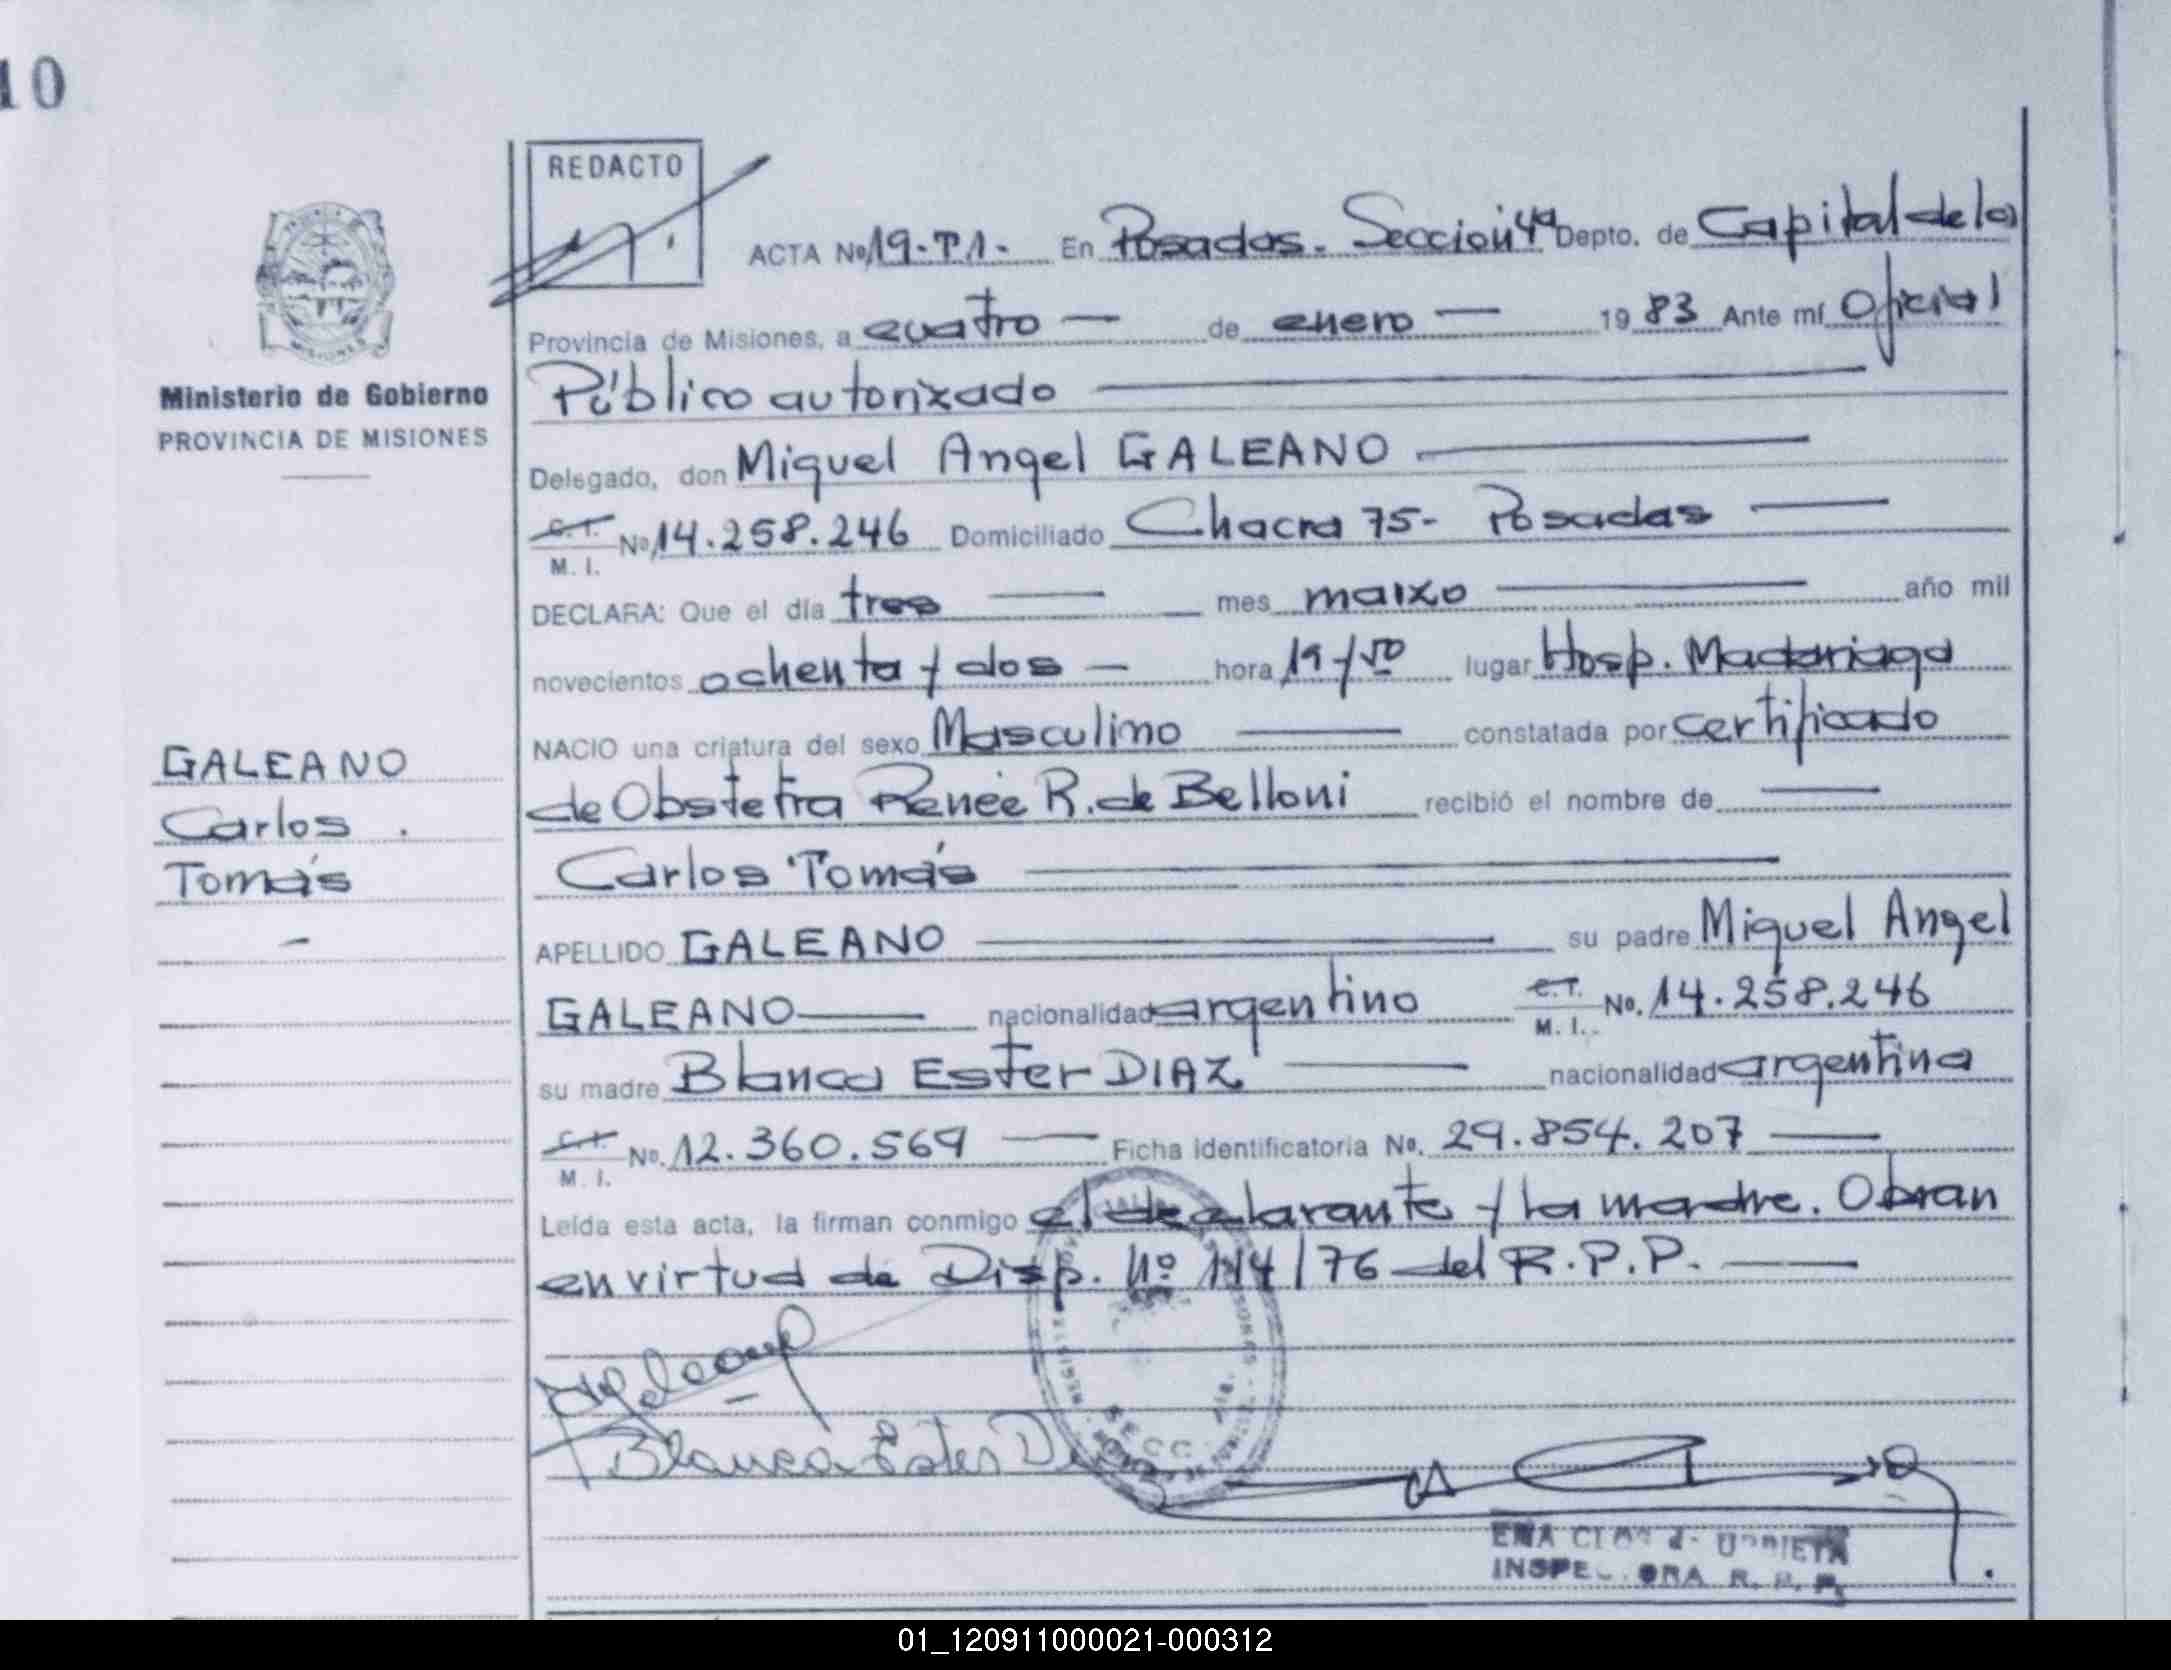 10
REDACTO
ACTA Nº 19-T1- En Posadas. Sección 4ª Depto. de Capital de la
Provincia de Misiones, a cuatro — de enero — 19 83 Ante mí Oficial
Público autorizado
Ministerio de Gobierno
PROVINCIA DE MISIONES
Delegado, don Miguel Angel GALEANO
C.I. M. I. Nº 14.258.246 Domiciliado Chacra 75- Posadas
DECLARA: Que el día tres — mes marzo — año mil
novecientos ochenta y dos — hora 19 y 50 lugar Hosp. Madariaga
NACIO una criatura del sexo Masculino — constatada por certificado
de Obstetra Renée R. de Belloni recibió el nombre de
Carlos Tomás
APELLIDO GALEANO — su padre Miguel Angel
GALEANO — nacionalidad argentino C.I. M. I. No. 14.258.246
su madre Blanca Ester DIAZ — nacionalidad argentina
C.I. M. I. No. 12.360.569 — Ficha identificatoria No. 29.854.207
Leída esta acta, la firman conmigo el declarante y la madre. Obran
en virtud de Disp. Nº 114/76 del R.P.P.
GALEANO
Carlos
Tomás
Galeano
Blanca Ester
SECC.
INSPECTORA R. P. P.
01_120911000021-000312